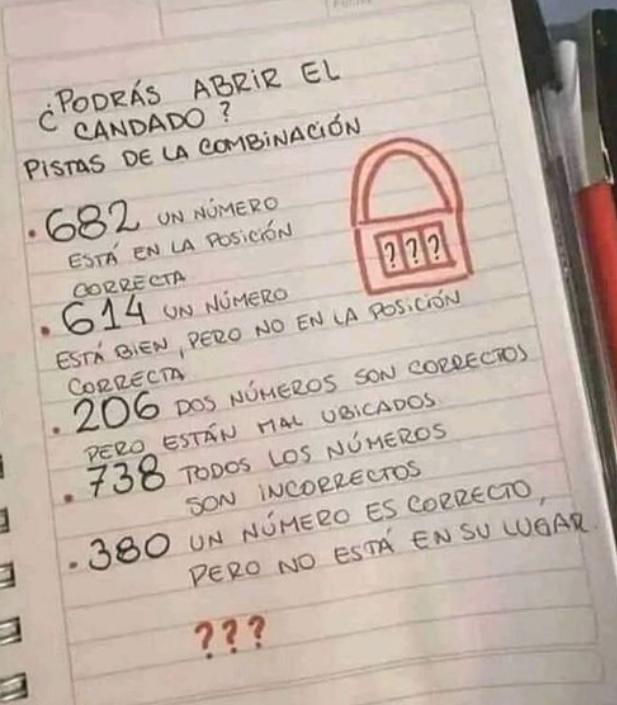 ¿PODRÁS ABRIR EL
CANDADO?
PISTAS DE LA COMBINACIÓN
.682 UN NÚMERO
ESTÁ EN LA POSICIÓN
CORRECTA
???
.614 UN NÚMERO
ESTÁ BIEN, PERO NO EN LA POSICIÓN
CORRECTA
.206 DOS NÚMEROS SON CORRECTOS
PERO ESTÁN MAL UBICADOS.
.738 TODOS LOS NÚMEROS
SON INCORRECTOS
.380 UN NÚMERO ES CORRECTO,
PERO NO ESTÁ EN SU LUGAR.
???